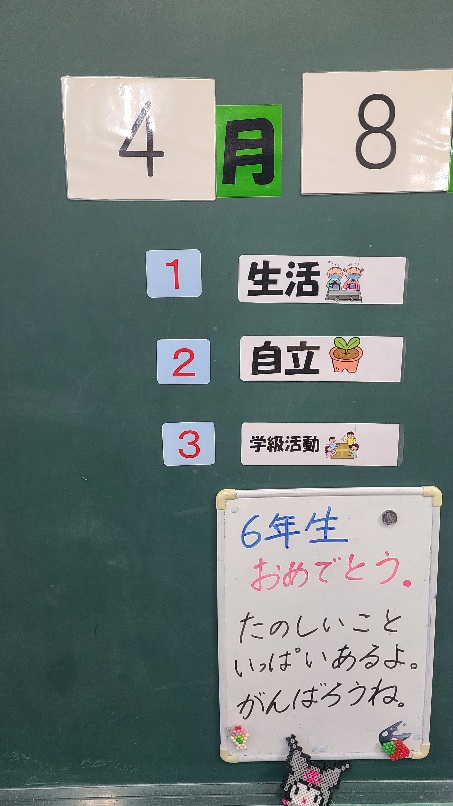 4月8
1 生活
2 自立
3 学級活動
6年生
おめでとう。
たのしいこと
いっぱいあるよ。
がんばろうね。